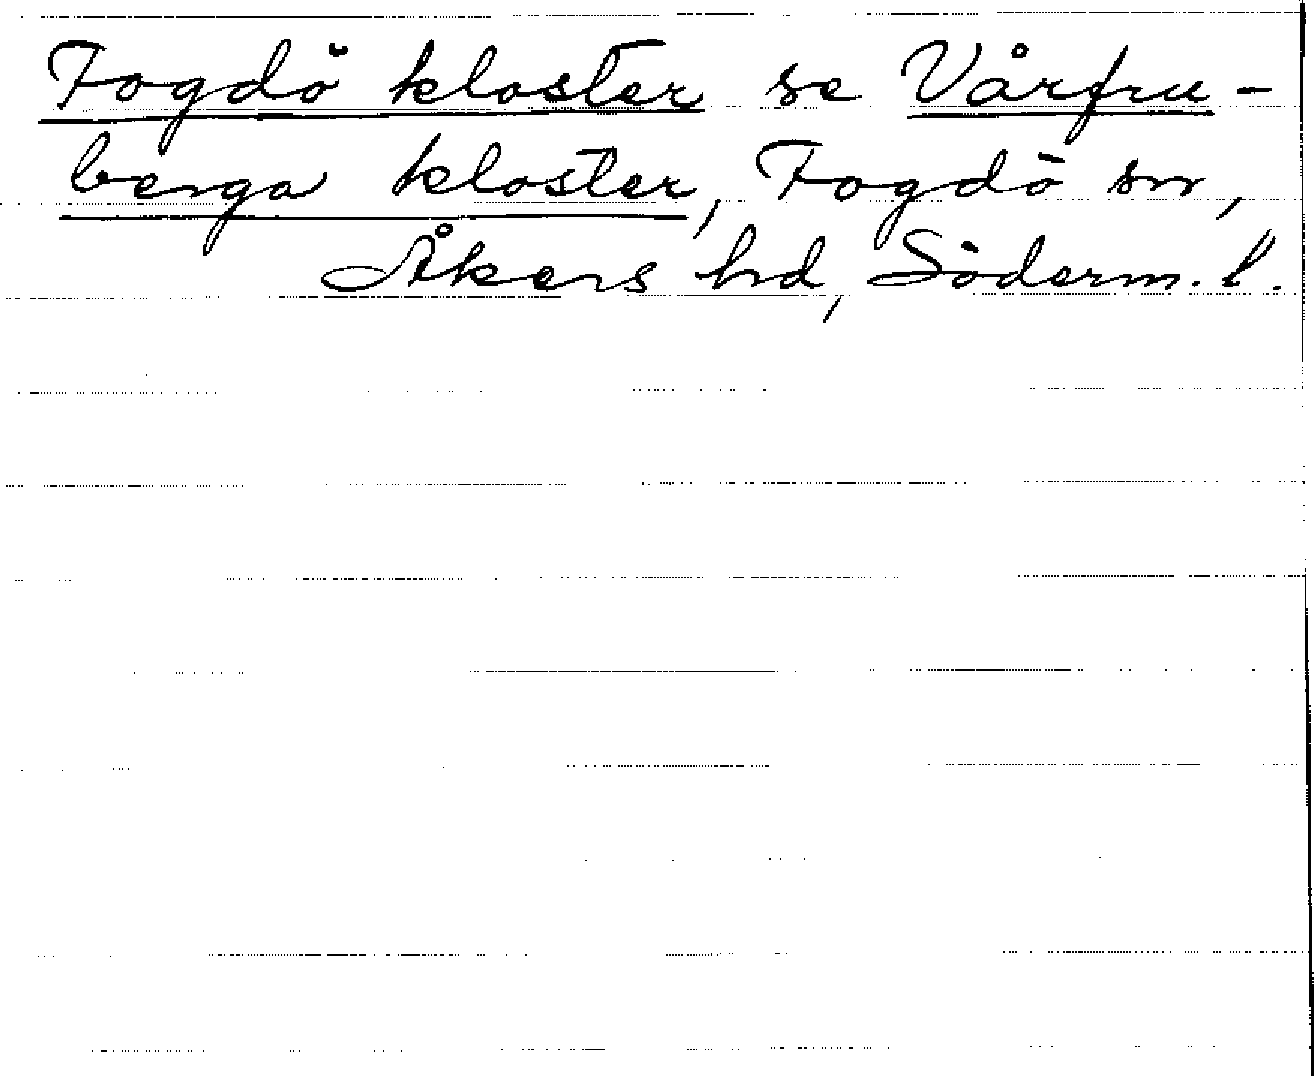 Fogdö kloster se Vårfru-
berga kloster, Fogdö sn,
Åkers hd, Söderm. l.